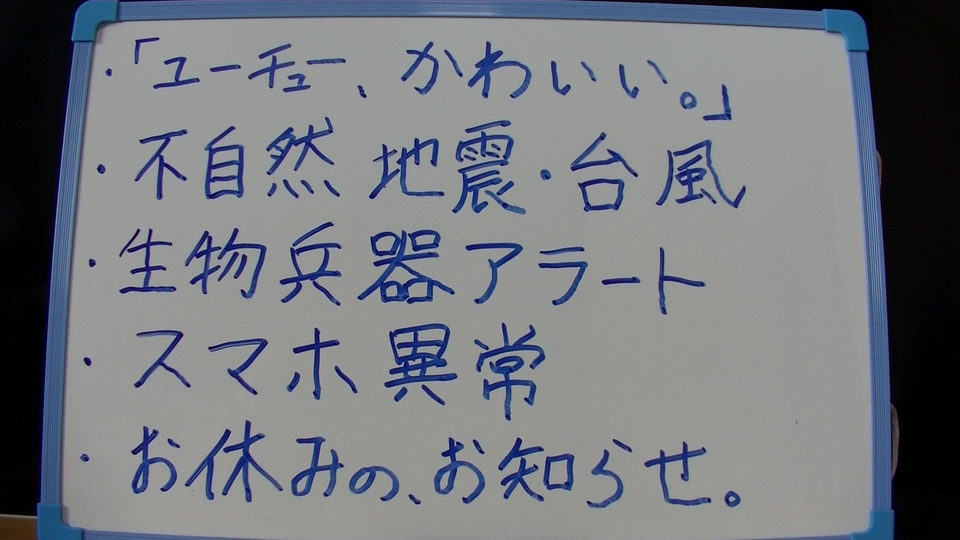 ・「ユーチュー、かわいい。」
・不自然 地震・台風
・生物兵器アラート
・スマホ異常
・お休みの、お知らせ。